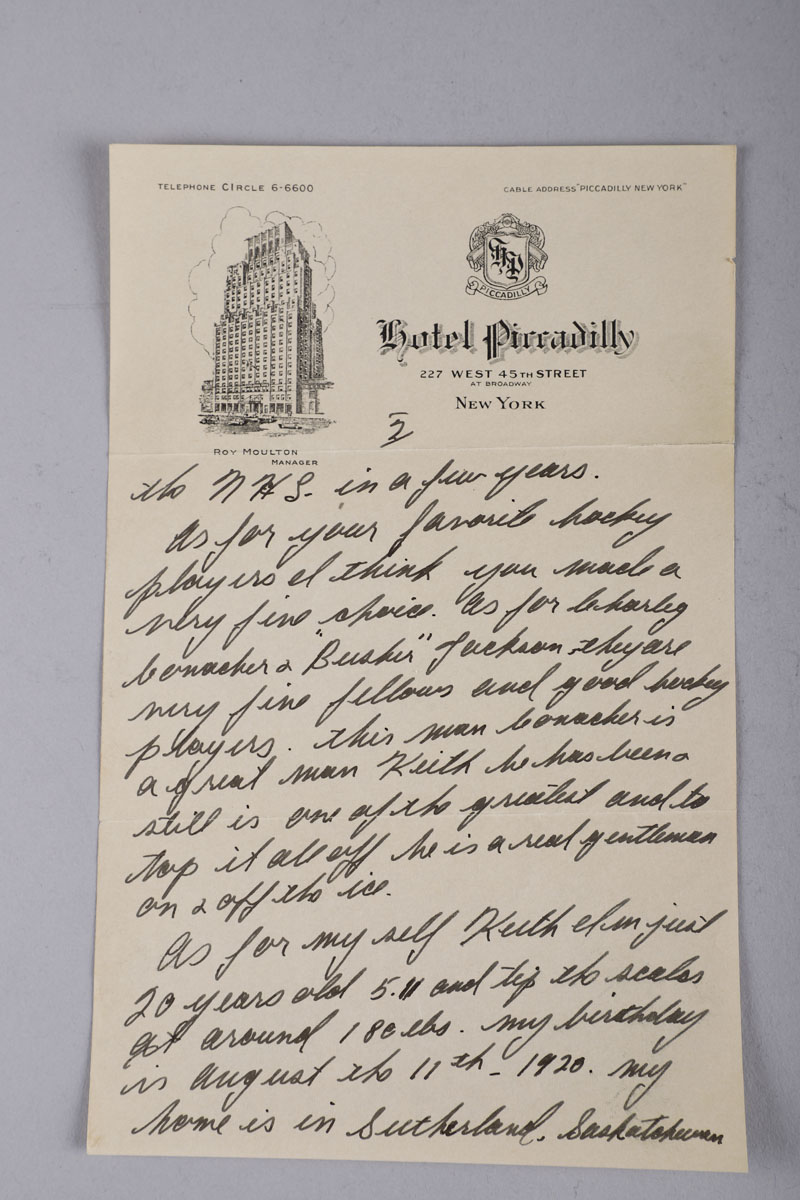 TELEPHONE CIRCLE 6-6600
CABLE ADDRESS "PICCADILLY NEW YORK"
HP
PICCADILLY
Hotel Piccadilly
227 WEST 45TH STREET
AT BROADWAY
NEW YORK
ROY MOULTON
MANAGER
2
the N.H.L. in a few years.
As for your favorite hockey
players I think you made a
very fine choice. As for Charley
Conacher & "Busher" Jackson, they are
very fine fellows and good hockey
players. This man Conacher is
a great man Keith he has been &
still is one of the greatest and to
top it all off he is a real gentleman
on & off the ice.
As for my self Keith I'm just
20 years old 5.11 and tip the scales
at around 180 lbs. My birthday
is August the 11th - 1920. My
home is in Sutherland, Saskatchewan